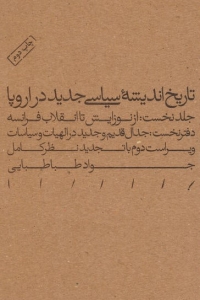 چاپ دوم
تاریخ اندیشهٔ سیاسی جدید در اروپا
جلد نخست: از نوزایش تا انقلاب فرانسه
دفتر نخست: جدال قدیم و جدید در الهیات و سیاسات
ویراست دوم با تجدید نظر کامل
جواد طباطبایی